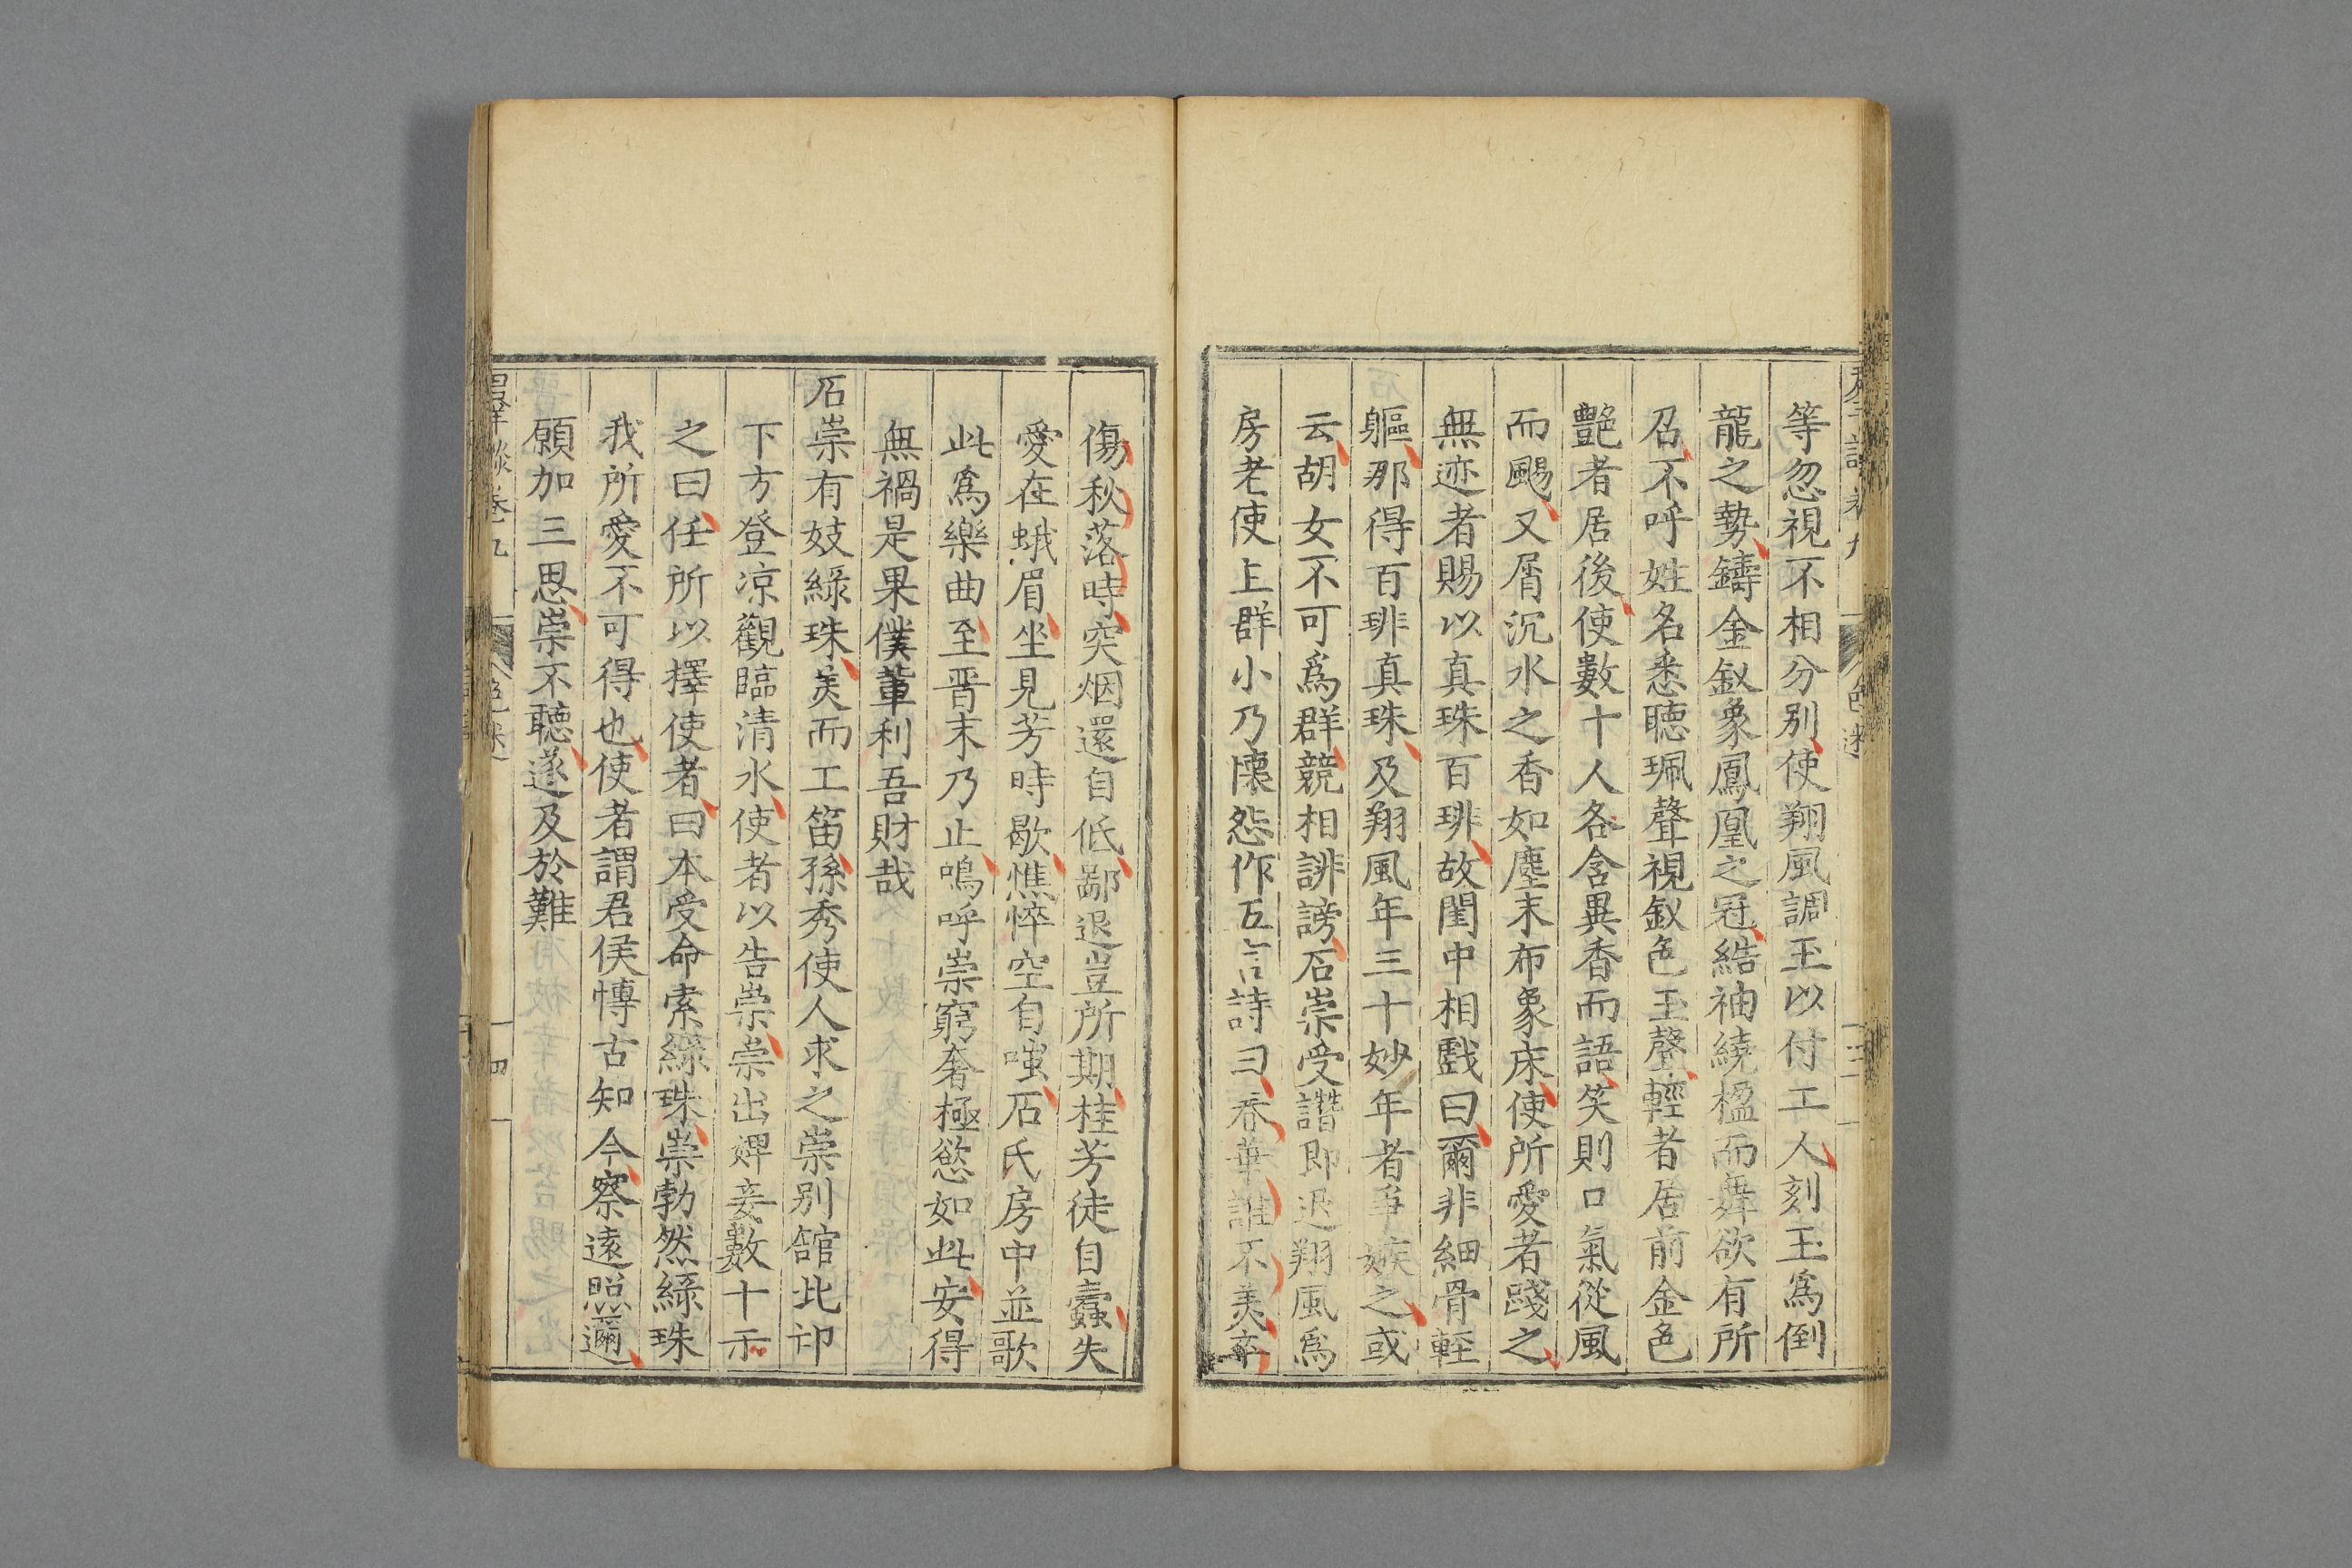 等忽視不相分别使翔風調玉以付工人刻玉爲倒
龍之勢鑄金釵象鳳凰之冠結袖繞楹而舞欲有所
召不呼姓名悉聽珮聲視釵色玉聲輕者居前金色
艷者居後使數十人各含異香而語笑則口氣從風
而颺又屑沉水之香如塵末布象床使所愛者踐之
無迹者賜以真珠百琲故閨中相戲曰爾非細骨輕
軀那得百琲真珠及翔風年三十妙年者爭嫉之或
云胡女不可爲群競相誹謗石崇受譖即退翔風爲
房老使上群小乃懷怨作五言詩曰春華誰不羙卒
傷秋落時突烟還自低鄙退豈所期桂芳徒自蠹失
愛在蛾眉坐見芳時歇憔悴空自嗤石氏房中並歌
此爲樂曲至晋末乃止嗚呼崇窮奢極慾如此安得
無禍是果僕輩利吾財哉
石崇有妓綠珠羙而工笛孫秀使人求之崇别舘北邙
下方登凉觀臨清水使者以告崇崇出婢妾數十示
之曰任所以擇使者曰本受命索綠珠崇勃然綠珠
我所愛不可得也使者謂君侯博古知今察遠照邇
願加三思崇不聽遂及於難
卷九
四